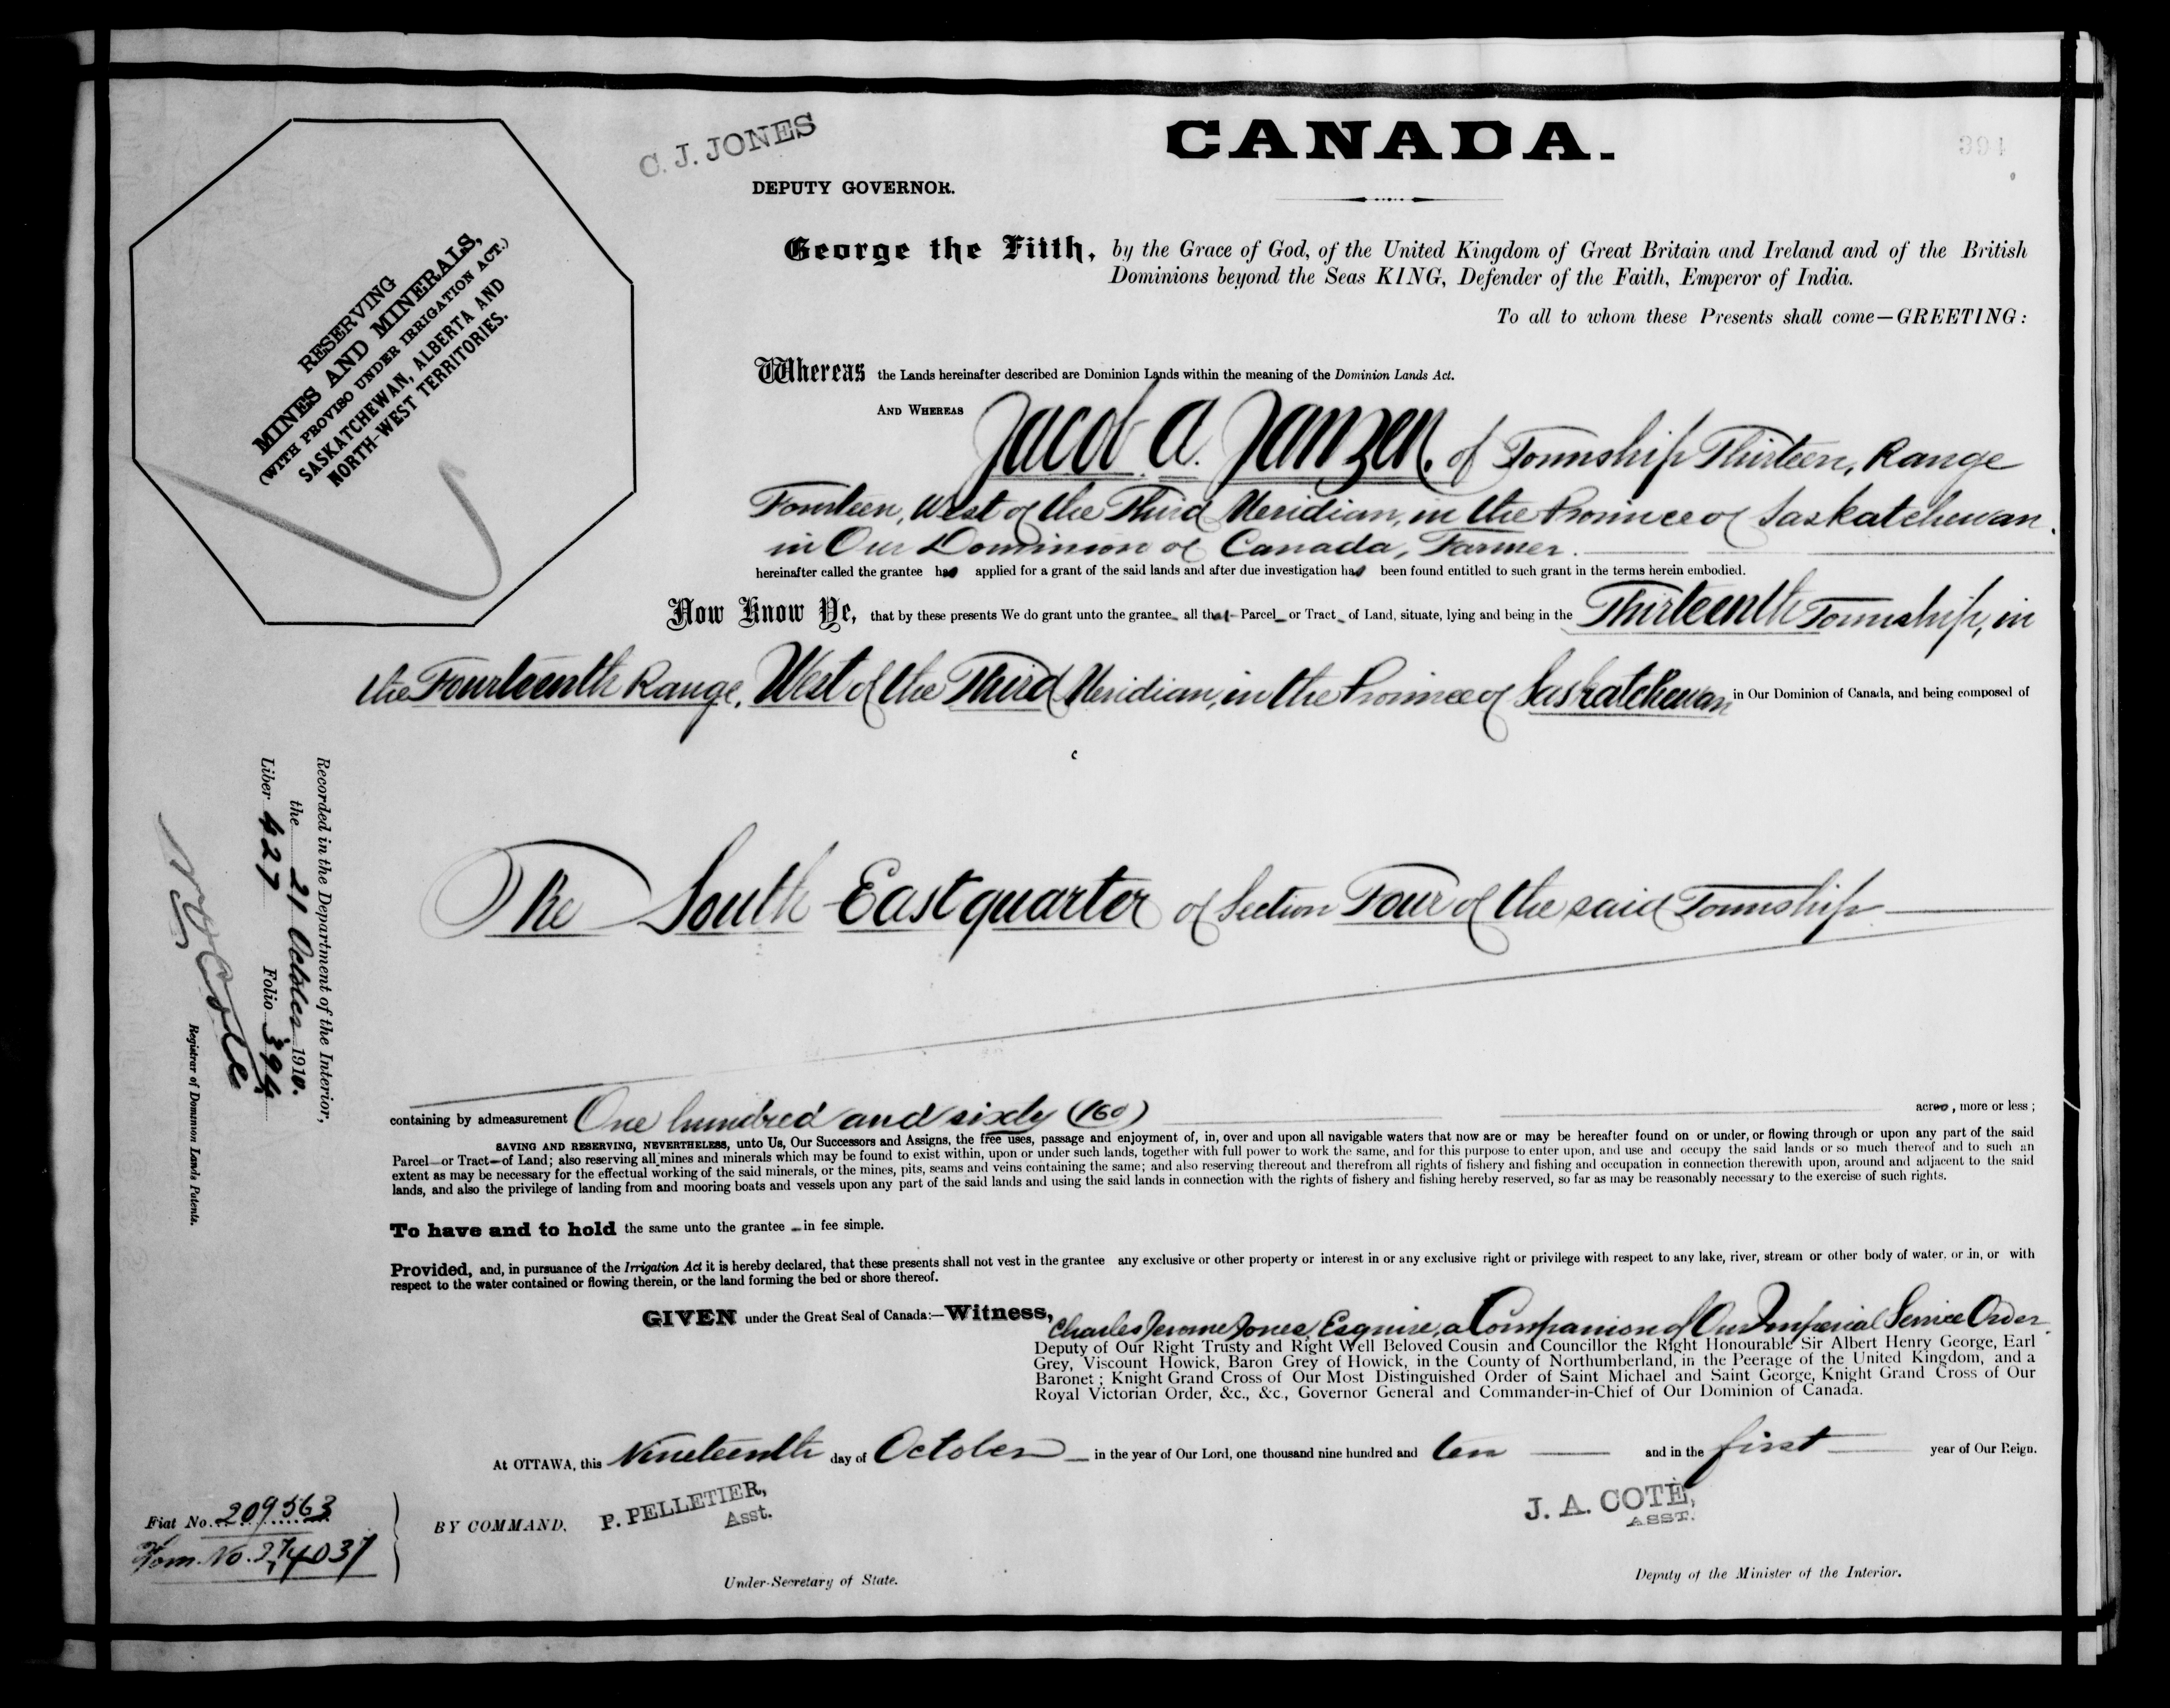 C. J. JONES
DEPUTY GOVERNOR.
CANADA.
394
RESERVING
MINES AND MINERALS,
(WITH PROVISO UNDER IRRIGATION ACT.)
SASKATCHEWAN, ALBERTA AND
NORTH-WEST TERRITORIES.
George the Fifth, by the Grace of God, of the United Kingdom of Great Britain and Ireland and of the British
Dominions beyond the Seas KING, Defender of the Faith, Emperor of India.
To all to whom these Presents shall come—GREETING:
Whereas the Lands hereinafter described are Dominion Lands within the meaning of the Dominion Lands Act.
AND WHEREAS Jacob A. Janzen, of Township Thirteen, Range
Fourteen, West of the Third Meridian, in the Province of Saskatchewan,
in Our Dominion of Canada, Farmer.
hereinafter called the grantee has applied for a grant of the said lands and after due investigation has been found entitled to such grant in the terms herein embodied.
Now Know Ye, that by these presents We do grant unto the grantee all that Parcel or Tract of Land, situate, lying and being in the Thirteenth Township, in
the Fourteenth Range, West of the Third Meridian, in the Province of Saskatchewan in Our Dominion of Canada, and being composed of
The South East quarter of Section Four of the said Township
containing by admeasurement One hundred and sixty (160) acres, more or less;
SAVING AND RESERVING, NEVERTHELESS, unto Us, Our Successors and Assigns, the free uses, passage and enjoyment of, in, over and upon all navigable waters that now are or may be hereafter found on or under, or flowing through or upon any part of the said
Parcel or Tract of Land; also reserving all mines and minerals which may be found to exist within, upon or under such lands, together with full power to work the same, and for this purpose to enter upon, and use and occupy the said lands or so much thereof and to such an
extent as may be necessary for the effectual working of the said minerals, or the mines, pits, seams and veins containing the same; and also reserving thereout and therefrom all rights of fishery and fishing and occupation in connection therewith upon, around and adjacent to the said
lands, and also the privilege of landing from and mooring boats and vessels upon any part of the said lands and using the said lands in connection with the rights of fishery and fishing hereby reserved, so far as may be reasonably necessary to the exercise of such rights.
To have and to hold the same unto the grantee in fee simple.
Provided, and, in pursuance of the Irrigation Act it is hereby declared, that these presents shall not vest in the grantee any exclusive or other property or interest in or any exclusive right or privilege with respect to any lake, river, stream or other body of water, or in, or with
respect to the water contained or flowing therein, or the land forming the bed or shore thereof.
GIVEN under the Great Seal of Canada:—Witness, Charles Jerome Jones, Esquire, a Companion of Our Imperial Service Order,
Deputy of Our Right Trusty and Right Well Beloved Cousin and Councillor the Right Honourable Sir Albert Henry George, Earl
Grey, Viscount Howick, Baron Grey of Howick, in the County of Northumberland, in the Peerage of the United Kingdom, and a
Baronet; Knight Grand Cross of Our Most Distinguished Order of Saint Michael and Saint George, Knight Grand Cross of Our
Royal Victorian Order, &c., &c., Governor General and Commander-in-Chief of Our Dominion of Canada.
At OTTAWA, this Nineteenth day of October in the year of Our Lord, one thousand nine hundred and ten and in the first year of Our Reign.
BY COMMAND,
P. PELLETIER,
Asst.
Under-Secretary of State.
J. A. COTÉ,
ASST.
Deputy of the Minister of the Interior.
Recorded in the Department of the Interior,
the 21 October 1910.
Liber 427 Folio 394
Registrar of Dominion Lands Patents.
Fiat No. 209563
Hom. No. 274037